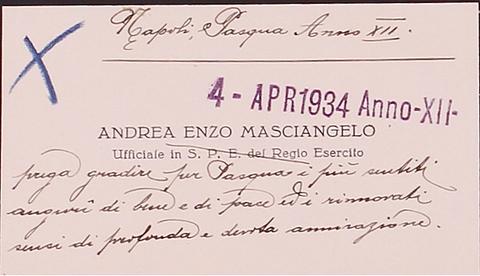 Napoli, Pasqua Anno XII.
4 - APR 1934 Anno-XII-
ANDREA ENZO MASCIANGELO
Ufficiale in S. P. E. del Regio Esercito
prega gradire per Pasqua i più sentiti
augurii di bene e di pace ed i rinnovati
sensi di profonda e devota ammirazione.